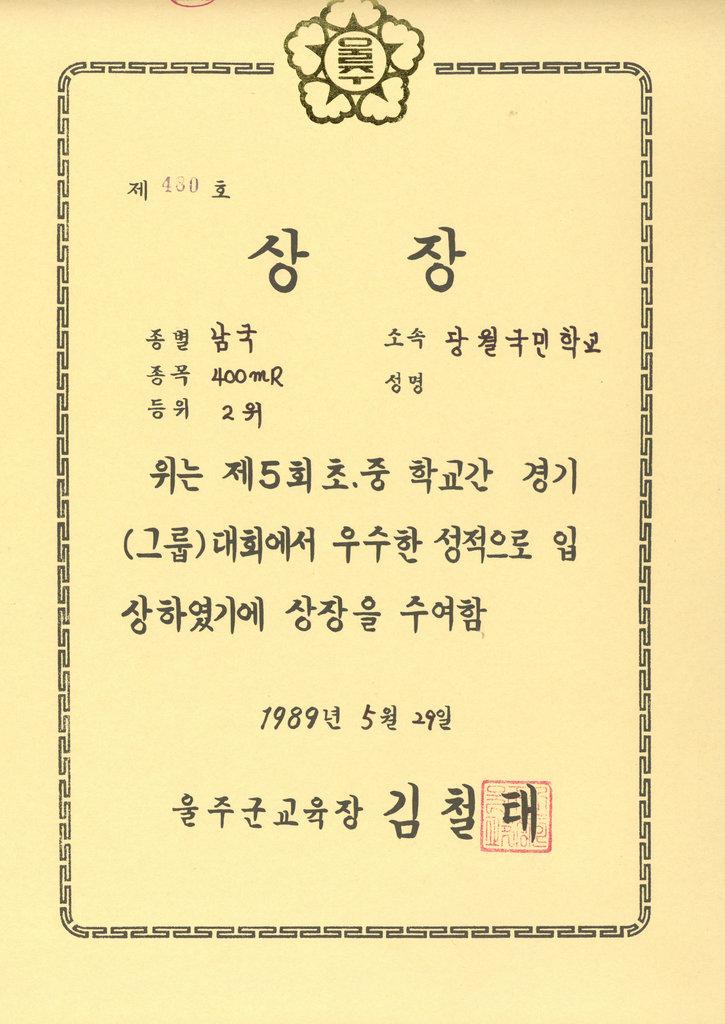 울주
제 430 호
상 장
종별 남국 소속 당월국민학교
종목 400mR 성명
등위 2위
위는 제5회 초.중 학교간 경기
(그룹)대회에서 우수한 성적으로 입
상하였기에 상장을 주여함
1989년 5월 29일
울주군교육장 김철태